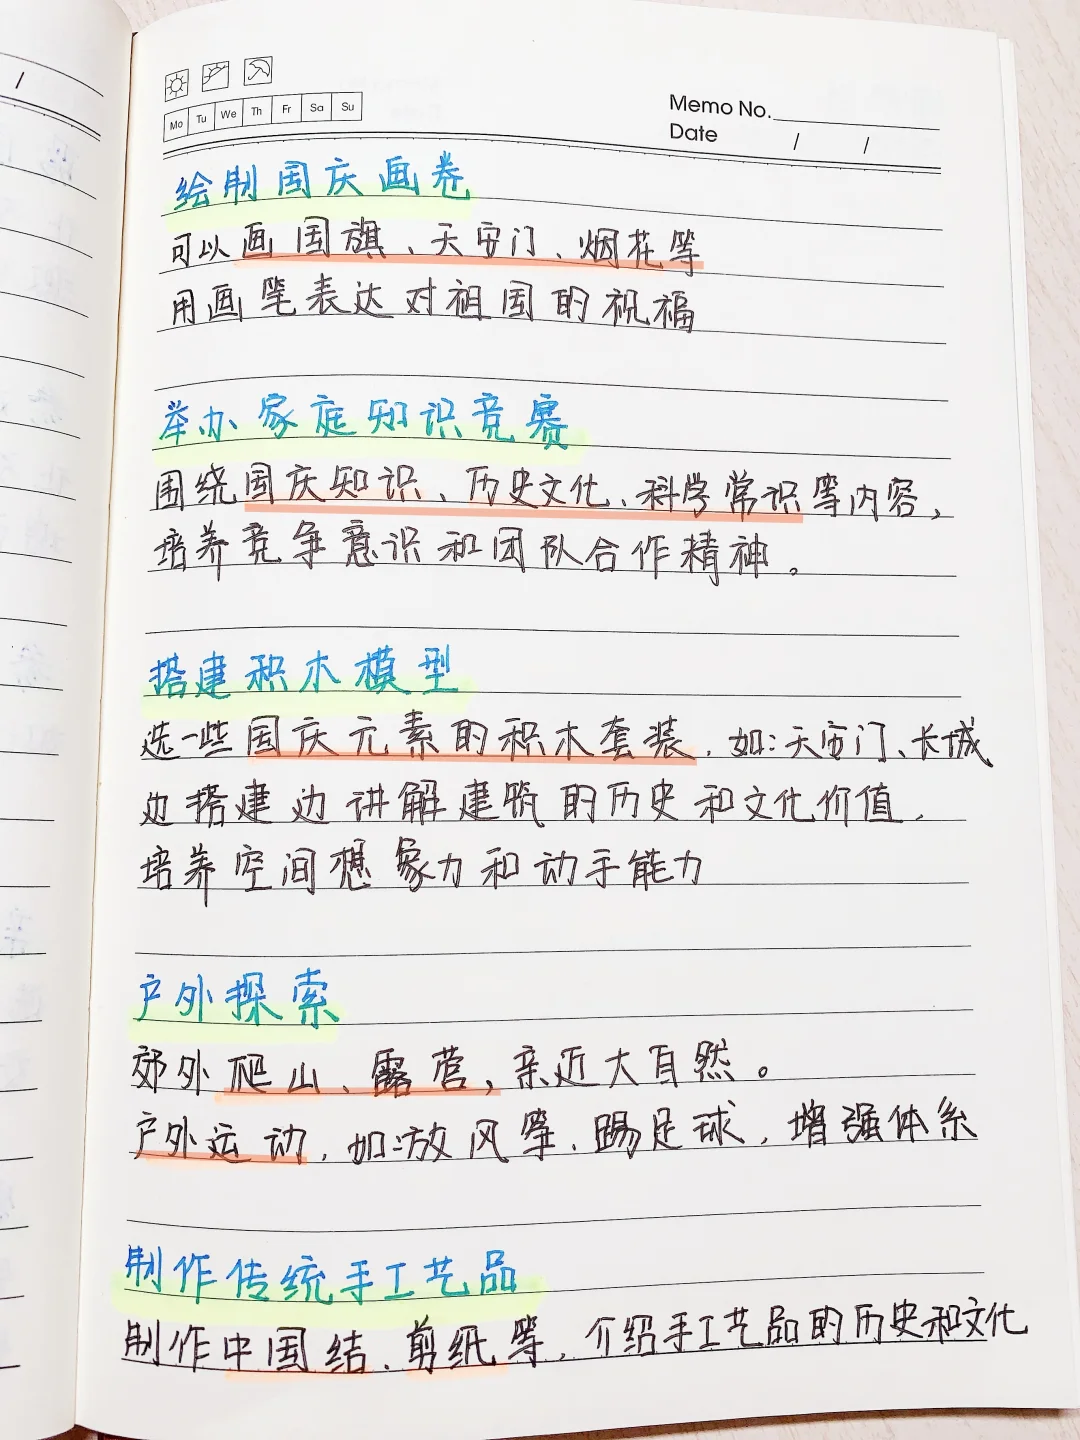 Mo Tu We Th Fr Sa Su
Memo No.
Date / /
绘制国庆画卷
可以画国旗、天安门、烟花等
用画笔表达对祖国的祝福
举办家庭知识竞赛
围绕国庆知识、历史文化、科学常识等内容,
培养竞争意识和团队合作精神。
搭建积木模型
选一些国庆元素的积木套装,如:天安门、长城
边搭建边讲解建筑的历史和文化价值,
培养空间想象力和动手能力
户外探索
郊外爬山、露营,亲近大自然。
户外运动,如:放风筝、踢足球,增强体系
制作传统手工艺品
制作中国结、剪纸等,介绍手工艺品的历史和文化